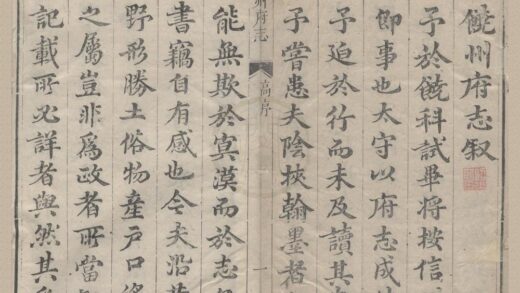 饒州府志叙
予於饒科試畢將按信
卽事也太守以府志成
予迫於行而未及讀其
予嘗患夫陰挾翰墨者
州府志
高序
一
能無欺於冥漠而於志
書竊自有感也今夫沿
野形勝土俗物產戶口
之屬豈非爲政者所當
記載所必詳者與然其